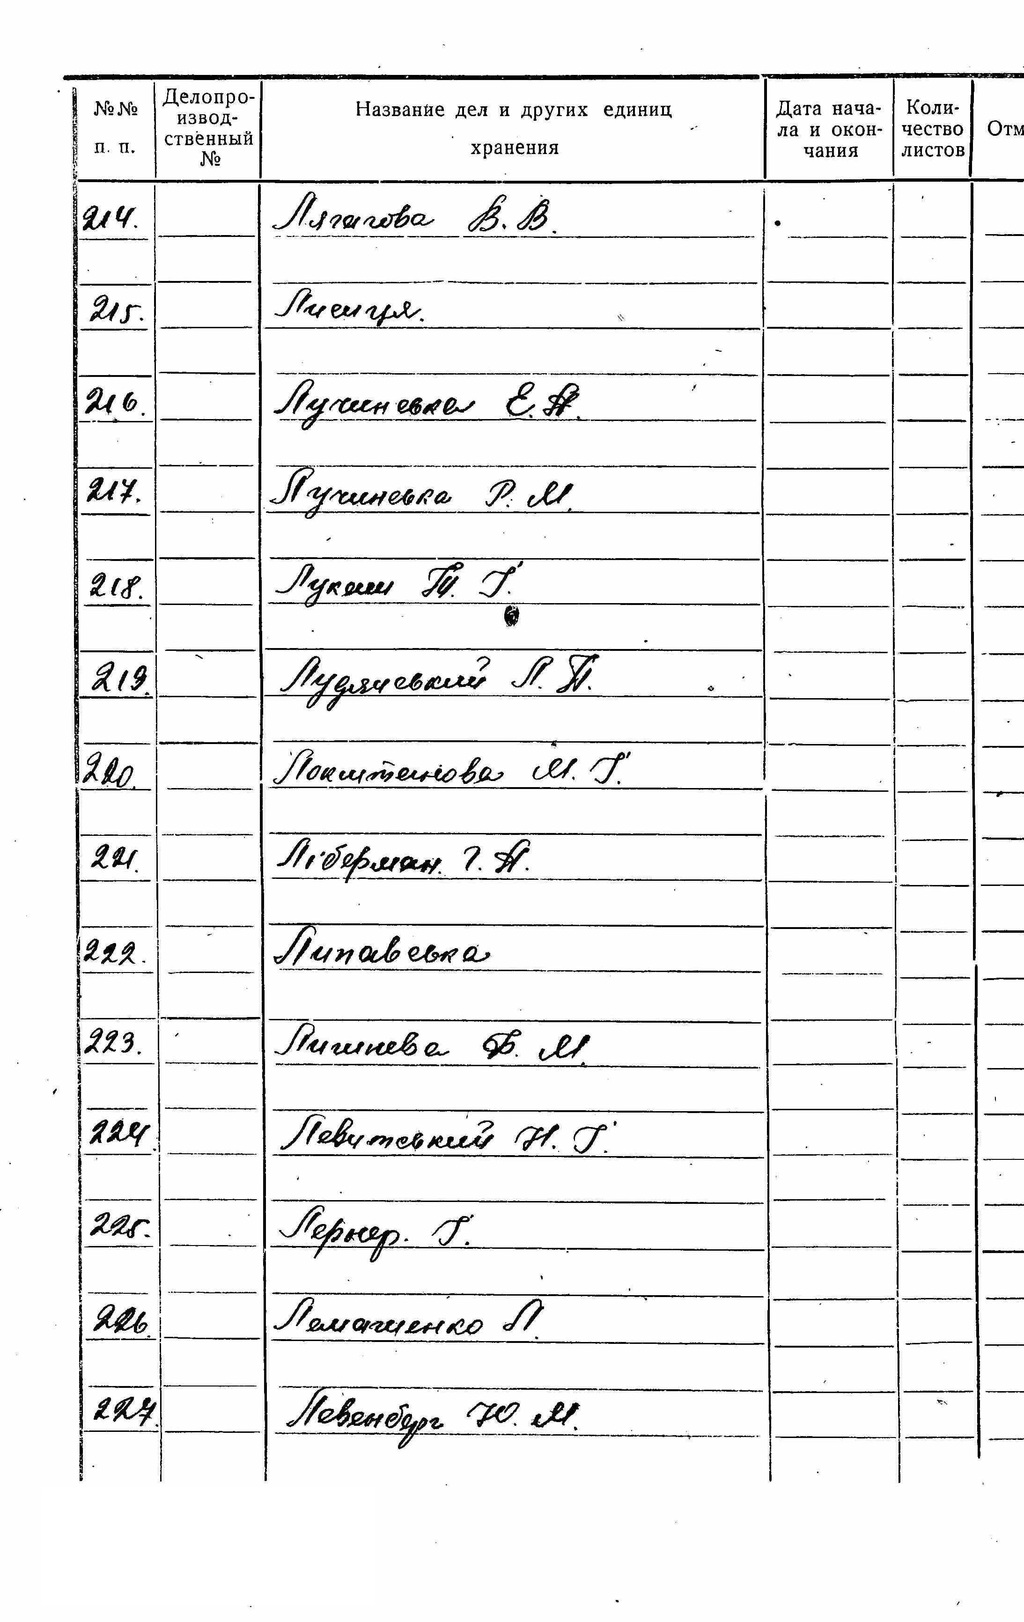 №№ п. п. Делопроизводственный № Название дел и других единиц хранения Дата начала и окончания Количество листов Отм
214. Лягагова В. В.
215. Лисиця.
216. Лучинська Е. А.
217. Лучинська Р. М.
218. Лукаш Т. Г.
219. Лудзиський Л. П.
220. Локштейнова М. Г.
221. Ліберман. Г. А.
222. Липавська
223. Личинева Ф. М.
224. Левитський Н. Г.
225. Лернер. Г.
226. Лемашенко Л.
227. Левенберг Ю. М.